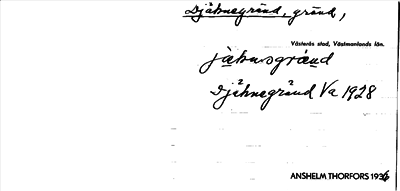 Djäknegränd, gränd,
Västerås stad, Västmanlands län.
jäknsgränd
Djäknegränd Va 1928
ANSHELM THORFORS 1936